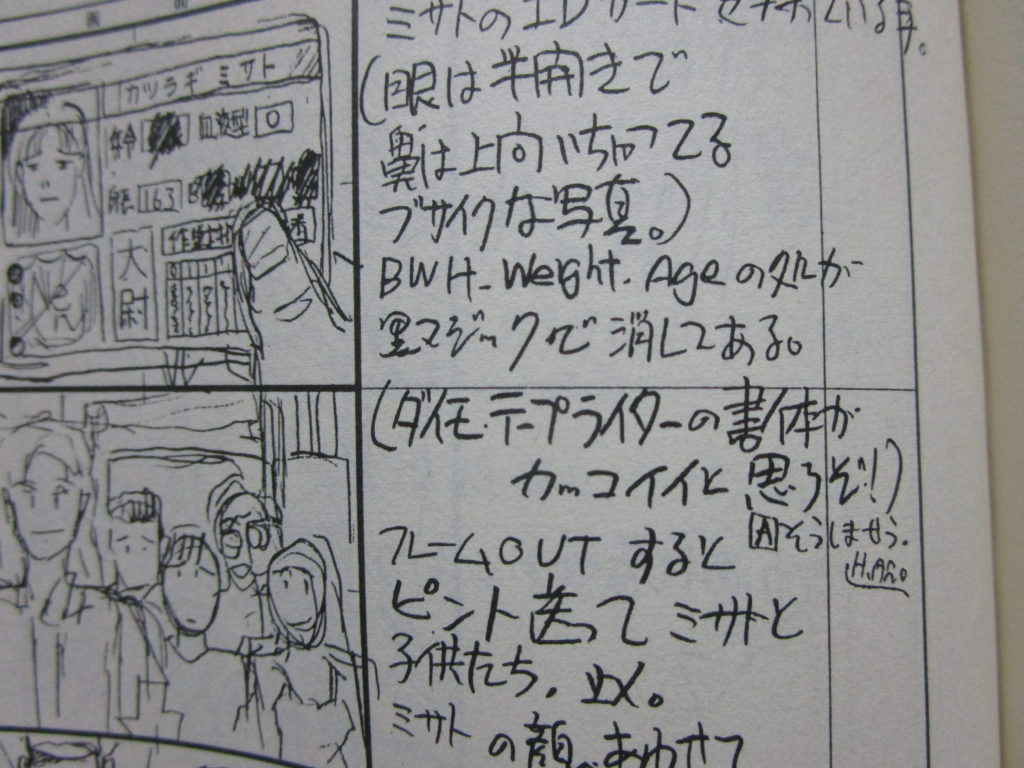 画 面
カツラギ ミサト
年令 血液型 O
身長 163 B
大尉
ミサトのIDカード
(眼は半開きで
鼻は上向いちゃってる
ブサイクな写真。)
BWH. Weight. Ageの処が
黒マジックで消してある。
(ダイモ・テープライターの書体が
カッコイイと思うぞ!)
Aそうしませう。
フレームOUTすると
ピント送ってミサトと
子供たち。止メ。
ミサトの顔、あわせて